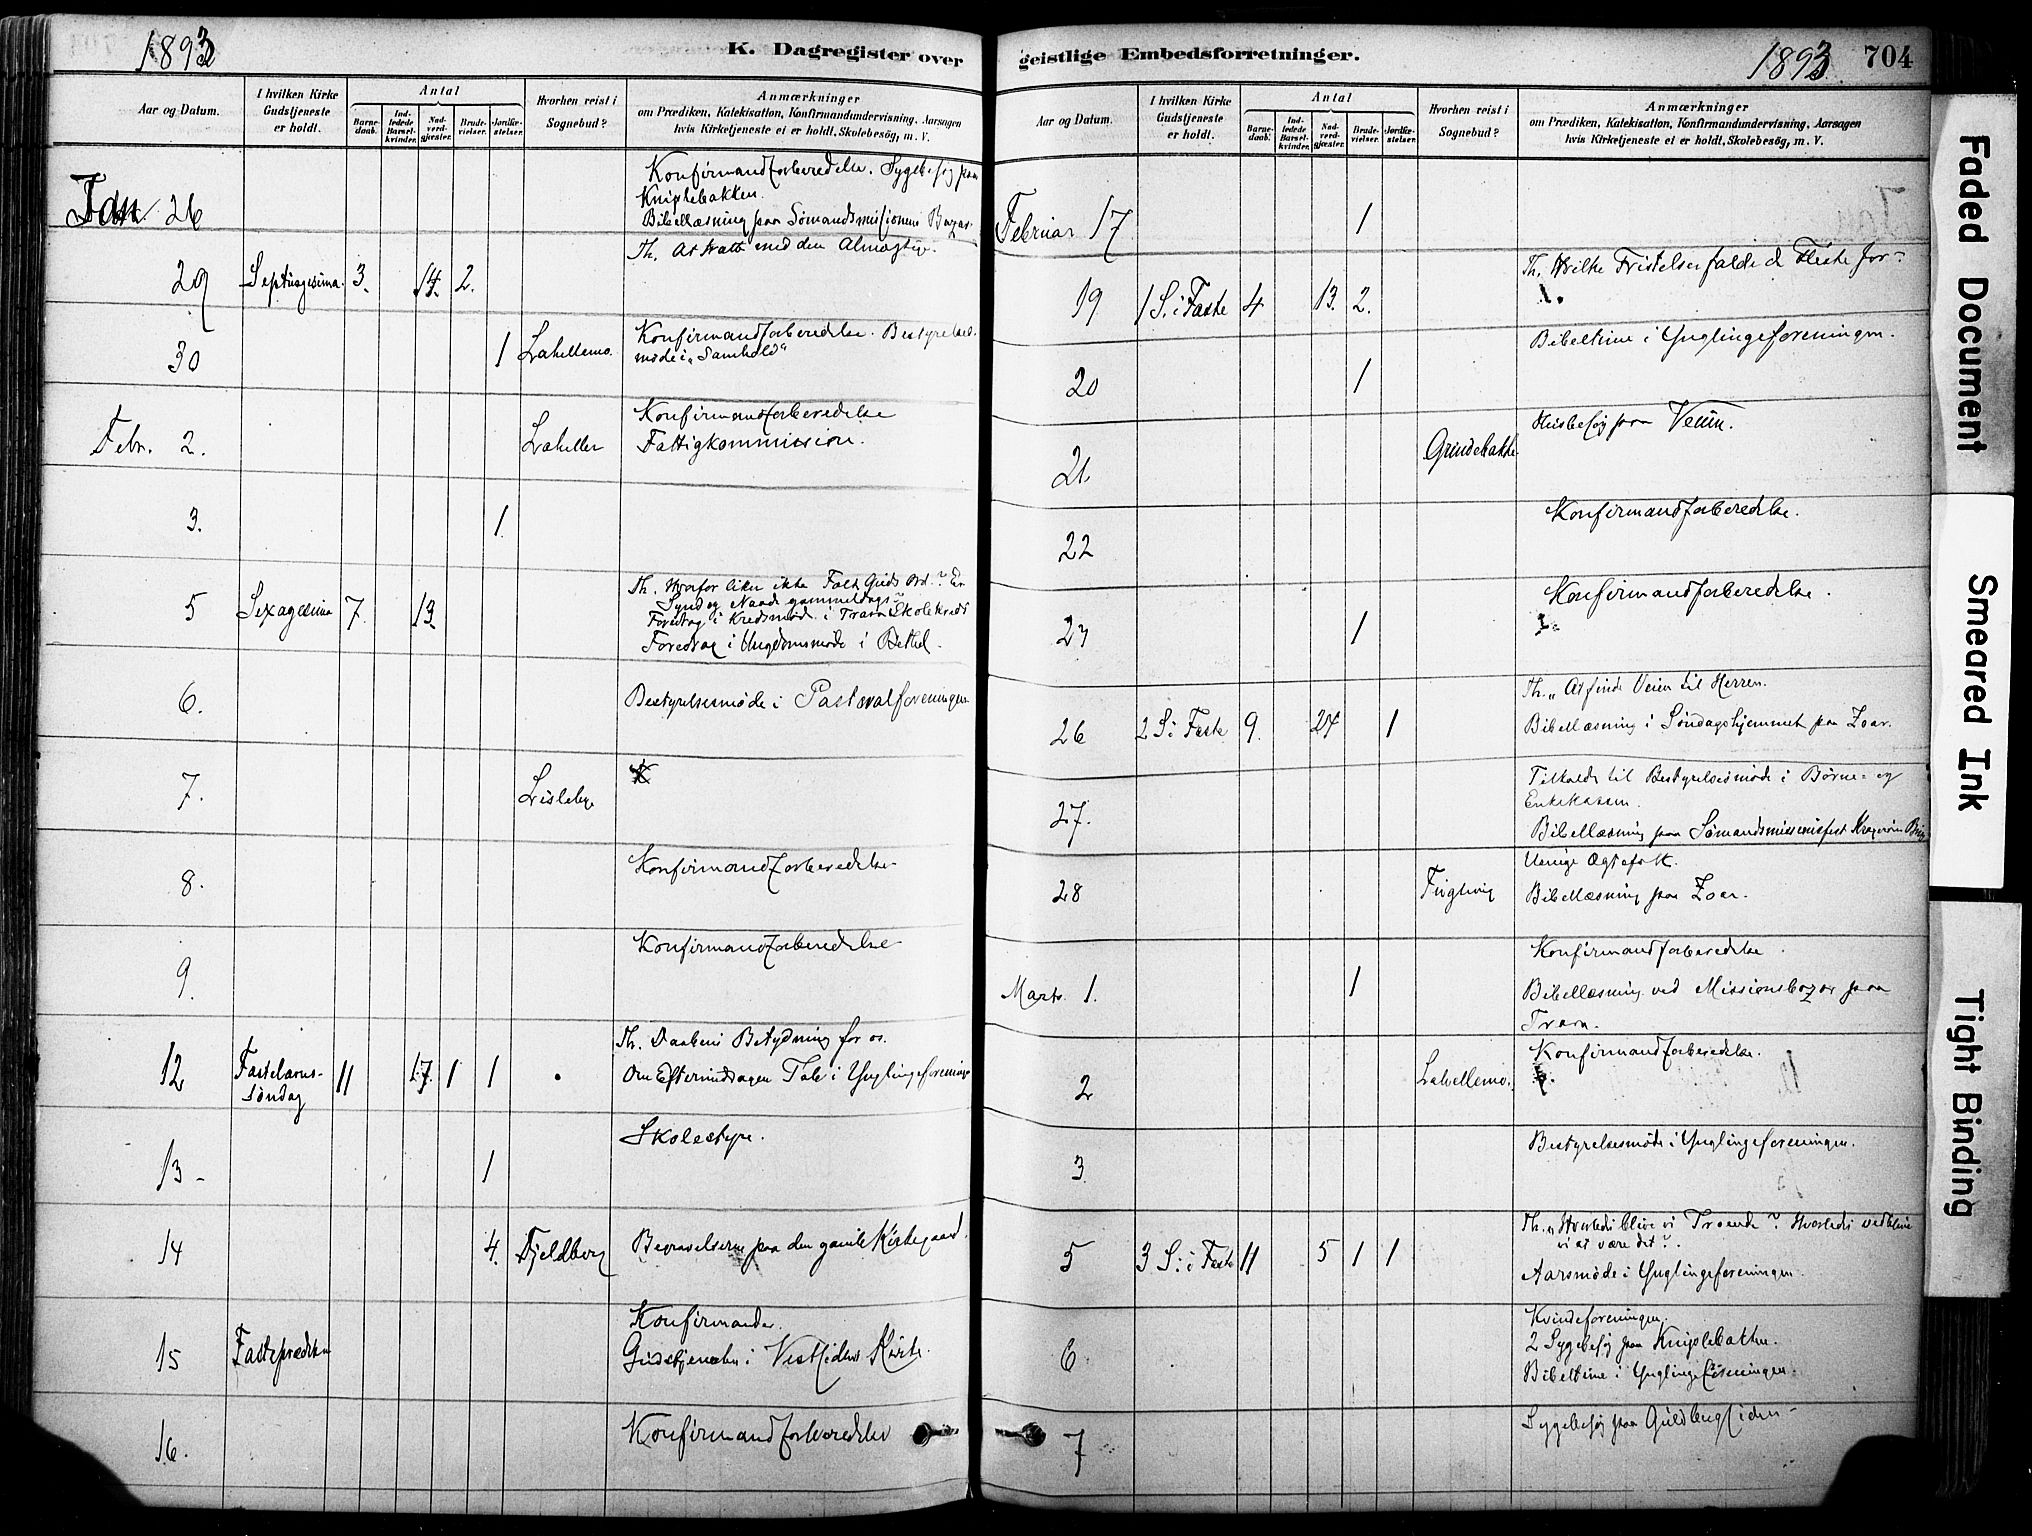 1893
K. Dagregister over
Aar og Datum.
I hvilken Kirke Gudstjeneste er holdt.
Antal
Barnedaab.
Indledede Barselkvinder.
Nadverdgjæster.
Brudevielser.
Jordfæstelser.
Hvorhen reist i Sognebud?
Anmærkninger
om Prædiken, Katekisation, Konfirmandundervisning, Aarsagen
hvis Kirketjeneste ei er holdt, Skolebesög, m. V.
Jan 26 Konfirmandforberedelse. Sygebesøg paa
Kniplebakken.
Bibellæsning paa Sømandsmisjonens Bazar
29 Septuagesima. 3. 14. 2. Th. At trætte med den Almægtige.
30 1 Lahellemo. Konfirmandforberedelse. Bestyrelses-
møde i "Samhold"
Febr. 2. Lahellen Konfirmandforberedelse
Fattigkommission.
3. 1
5 Sexagesima 7 13. Th. Hvorfor liker ikke Folk Guds Ord? Er
Synd og Naade gammeldags?
Foredrag i Kredsmøde i Trara Skolekreds
Foredrag i Ungdomsmøde i Bethel.
6. Bestyrelsesmøde i Pastoralforeningen
7. Lisleby
8. Konfirmandforberedelse
9. Konfirmandforberedelse
12 Fastelavns-
søndag 11 17. 1 1 Th. Daabens Betydning for os.
Om Eftermiddagen Tale i Ynglingeforening
13 - 1 Skolestyre.
14 4. Fjeldberg Begravelserne paa den gamle Kirkegaard.
15 Fasteprædiken Konfirmander.
Gudstjenesten i Vestsidens Kirke.
16. Konfirmandforberedelse
geistlige Embedsforretninger.
1893
704
Aar og Datum.
I hvilken Kirke Gudstjeneste er holdt.
Antal
Barnedaab.
Indledede Barselkvinder.
Nadverdgjæster.
Brudevielser.
Jordfæstelser.
Hvorhen reist i Sognebud?
Anmærkninger
om Prædiken, Katekisation, Konfirmandundervisning, Aarsagen
hvis Kirketjeneste ei er holdt, Skolebesög, m. V.
Februar 17 1
19 1 S. i Faste 4 13. 2. Th. Hvilke Fristelser falde de Fleste for?
20 1 Bibeltime i Ynglingeforeningen.
21 Grundebakke. Husbesøg paa Veum.
22 Konfirmandforberedelse.
23 1 Konfirmandforberedelse.
26 2 S. i Faste 9. 24 1 Th. "At finde Veien til Herren.
Bibellæsning i Søndagshjemmet paa Zoar.
27. Tilkaldt til Bestyrelsesmøde i Børne- og
Enkekassen.
Bibellæsning paa Sømandsmissionsfest
28 Fuglevig Uenige Ægtefolk.
Bibellæsning paa Zoar.
Marts. 1. 1 Konfirmandforberedelse.
Bibellæsning ved Missionsbazar paa
Trara.
2 Lahellemo. Konfirmandforberedelse.
3 Bestyrelsesmøde i Ynglingeforeningen.
5 3 S. i Faste 11 5 1 1 Th. "Hvorledes blive vi Troende? Hvorledes vedblive
vi at være det?
Aarsmøde i Ynglingeforeningen.
6 Kvindeforeningen.
2 Sygebesøg paa Kniplebakken.
Bibeltime i Ynglingeforeningen
7 Sygebesøg paa Guldbergsiden-
Faded Document
Smeared Ink
Tight Binding